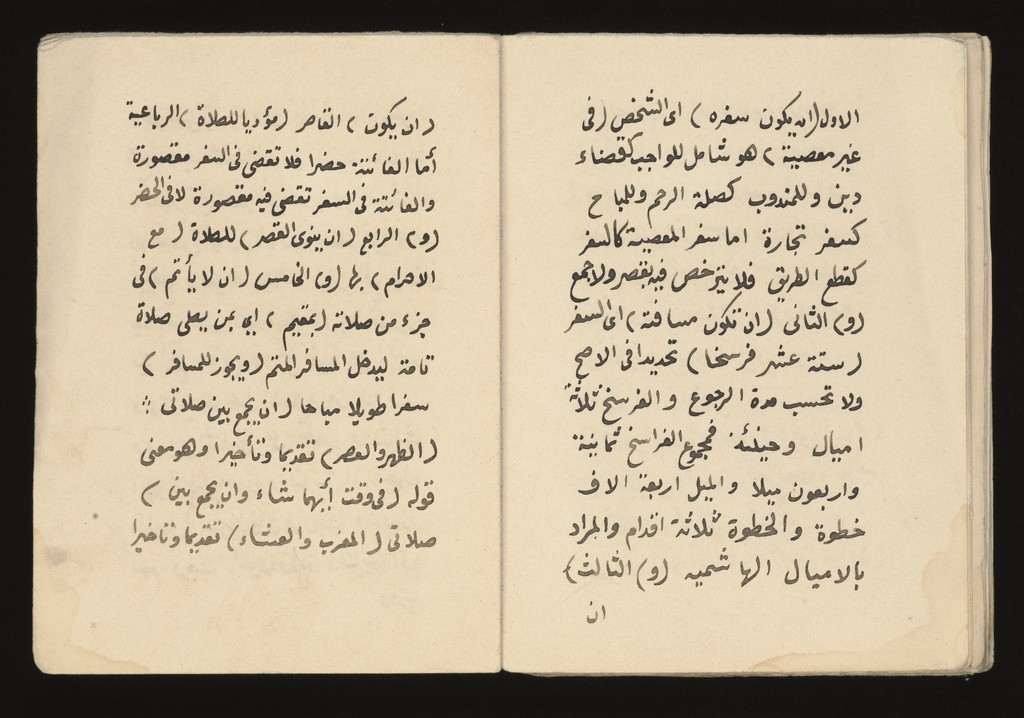 الاول (ان يكون سفره) اى الشخص (فى
غير معصية) هو شامل للواجب كقضاء
دين وللمندوب كصلة الرحم وللمباح
كسفر تجارة اما سفر المعصية كالسفر
كقطع الطريق فلا يترخص فيه بقصر ولا جمع
(و) الثانى (ان تكون مسافته) اى السفر
(ستة عشر فرسخا) تحديدا فى الاصح
ولا تحسب مدة الرجوع والفرسخ ثلاثة
اميال وحينئذ فمجموع الفراسخ ثمانية
واربعون ميلا والميل اربعة الاف
خطوة والخطوة ثلاثة اقدام والمراد
بالاميال الهاشمية (و) الثالث)
ان
(ان يكون) القاصر (مؤديا للصلاة) الرباعية
أما الفائتة حضرا فلا تقضى فى السفر مقصورة
والفائتة فى السفر تقضى فيه مقصورة لا فى الحضر
(و) الرابع (ان ينوى القصر) للصلاة (مع
الاحرام) بها (و) الخامس (ان لا يأتم) فى
جزء من صلاته (بمقيم) اي بمن يصلى صلاة
تامة ليدخل المسافر المتم (ويجوز للمسافر)
سفرا طويلا مباحا (ان يجمع بين صلاتى
(الظهر والعصر) تقديما وتأخيرا وهو معنى
قوله (فى وقت أيهما شاء وان يجمع بين)
صلاتى (المغرب والعشاء) تقديما وتاخيرا